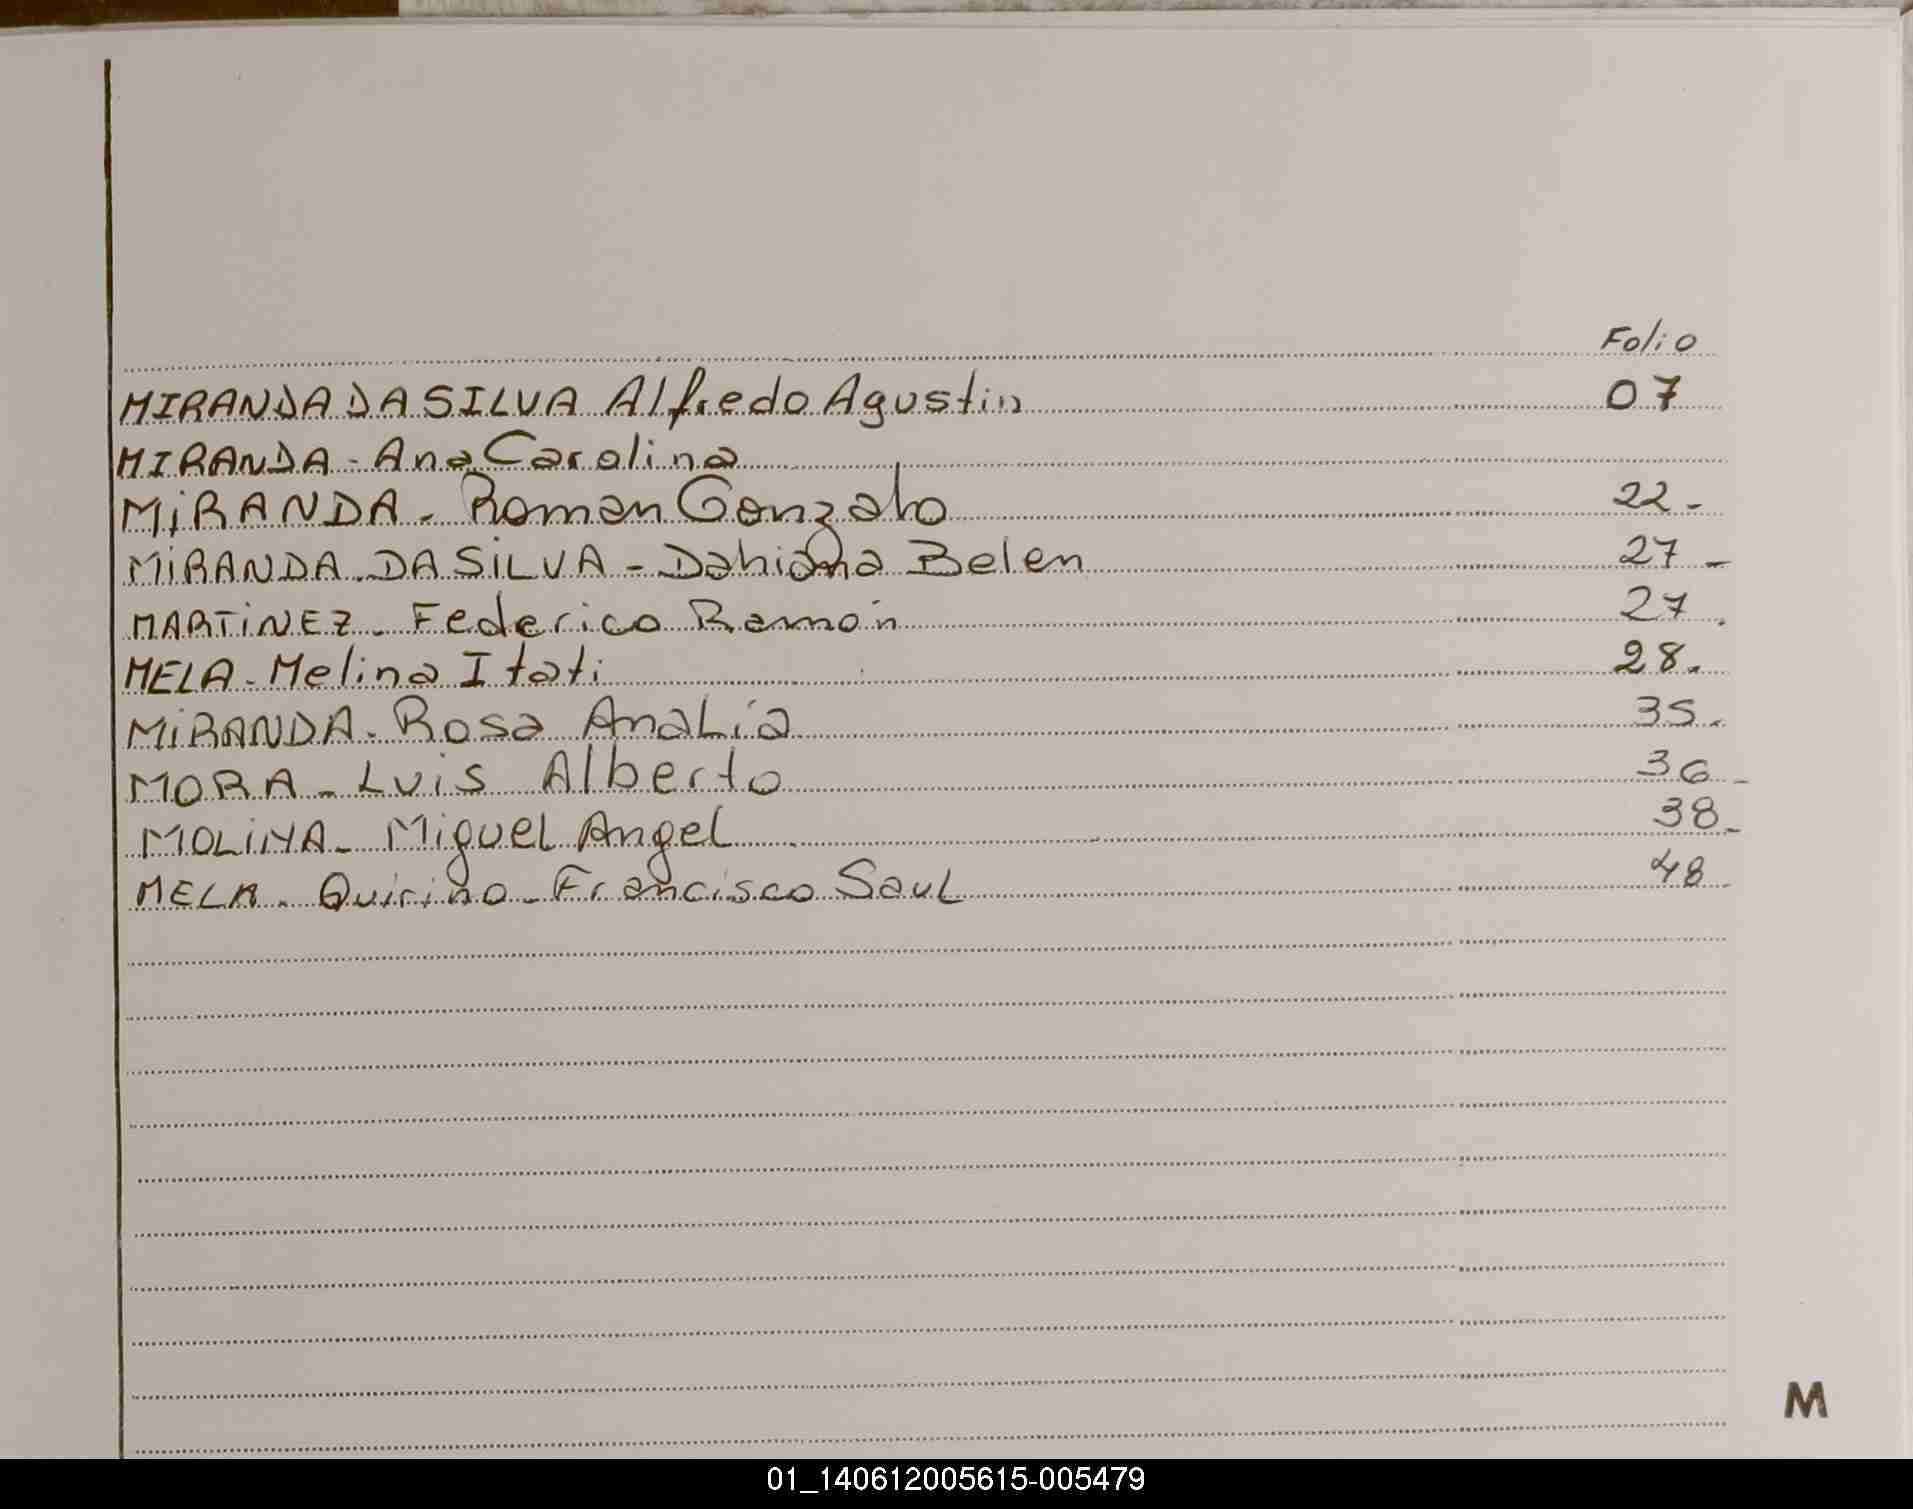 Folio
MIRANDA DA SILVA Alfredo Agustin 07
MIRANDA - Ana Carolina
MiRANDA - Roman Gonzalo 22 -
MiRANDA - DA SiLVA - Dahiana Belen 27 -
MARTiNEZ - Federico Ramón 27 .
MELA - Melina Itati 28 .
MiRANDA - Rosa AnaLía 35 .
MORA - Luis Alberto 36 -
MOLiNA - Miguel Angel 38 -
MELA - Quirino - Francisco Saul 48 -
M
01_140612005615-005479